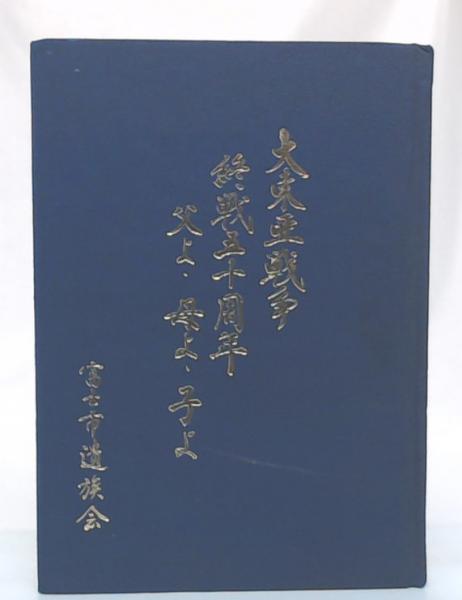 大東亜戦争
終戦五十周年
父よ、母よ、子よ
富士市遺族会